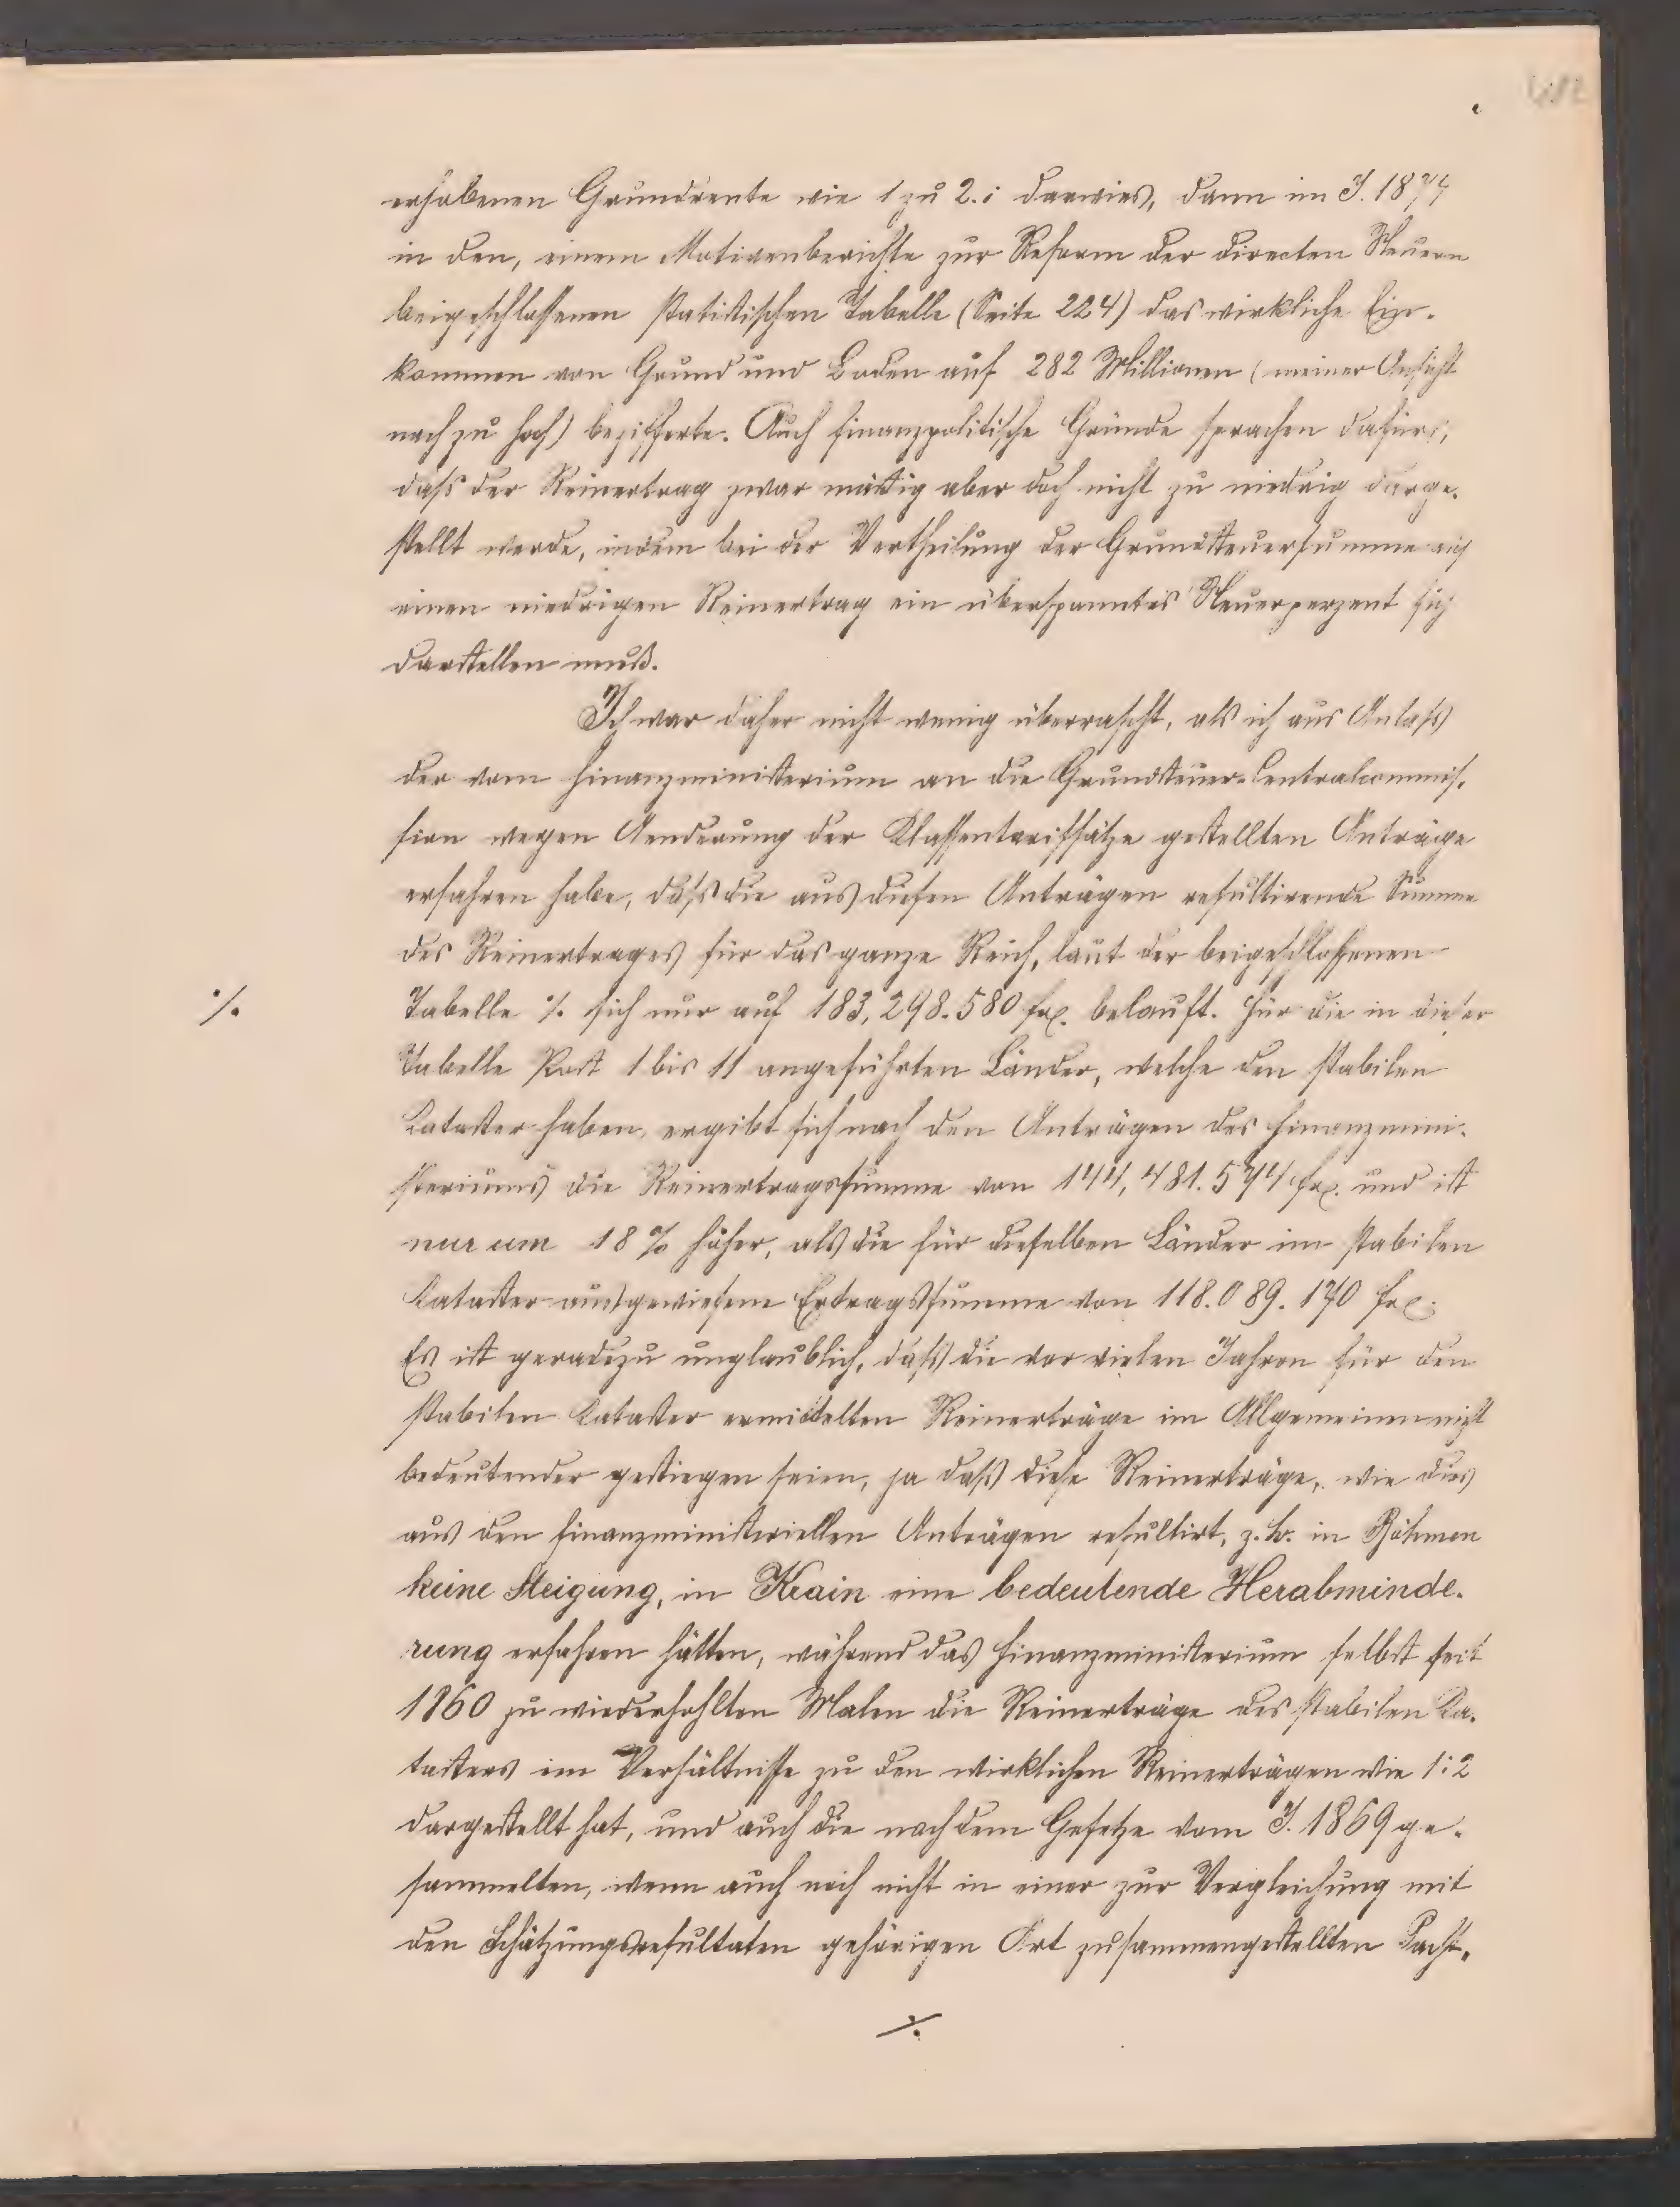 erhobenen Grundrente wie 1 zu 2.1 darwies, dann im J. 1874
in den, einem Motivenberichte zur Reform der directen Steuern
beigeschlossenen statistischen Tabelle (Seite 224) das wirkliche Ein-
kommen von Grund und Boden auf 282 Millionen (meiner Ansicht
nach zu hoch) bezifferte. Auch finanzpolitische Gründe sprachen dafür,
daß der Reinertrag zwar mäßig aber doch nicht zu niedrig darge-
stellt werde, indem bei der Vertheilung der Grundsteuersumme auf
einen niedrigen Reinertrag ein überspanntes Steuerperzent sich
darstellen muß.
Ich war daher nicht wenig überrascht, als ich aus Anlaß
der vom Finanzministerium an die Grundsteuer-Centralcommis-
sion wegen Aenderung der Klassentarifsätze gestellten Anträge
erfahren habe, daß die aus diesen Anträgen resultirende Summe
des Reinertrages für das ganze Reich, laut der beigeschlossenen
·/. Tabelle ·/. sich nur auf 183,298.580 fl. belauft. Für die in dieser
Tabelle Post 1 bis 11 angeführten Länder, welche den stabilen
Kataster haben, ergibt sich nach den Anträgen des Finanzmini-
steriums die Reinertragssumme von 144,481.574 fl. und ist
nur um 18 % höher, als die für dieselben Länder im stabilen
Kataster ausgewiesene Ertragssumme von 118.089.170 fl.
Es ist geradezu unglaublich, daß die vor vielen Jahren für den
stabilen Kataster ermittelten Reinerträge im Allgemeinen nicht
bedeutender gestiegen seien, ja daß diese Reinerträge, wie dies
aus den finanzministeriellen Anträgen resultirt, z. B. in Böhmen
keine Steigung, in Krain eine bedeutende Herabminde-
rung erfahren hätten, während das Finanzministerium selbst seit
1860 zu wiederhohlten Malen die Reinerträge des stabilen Ka-
tasters im Verhältnisse zu den wirklichen Reinerträgen wie 1:2
dargestellt hat, und auch die nach dem Gesetze vom J. 1869 ge-
sammelten, wenn auch noch nicht in einer zur Vergleichung mit
den Schätzungsresultaten gehörigen Art zusammengestellten Pacht-
·/.